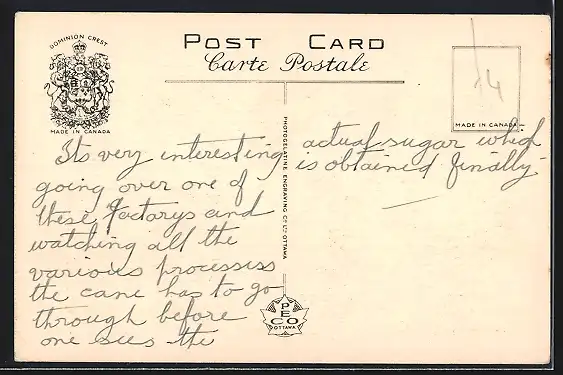 DOMINION CREST
MADE IN CANADA
POST CARD
Carte Postale
14
MADE IN CANADA
PHOTOGELATINE ENGRAVING CO LTD OTTAWA
Its very interesting
going over one of
these factarys and
watching all the
various processiss
the cane has to go
through before
one sees the
actual sugar which
is obtained finally
PECO
OTTAWA